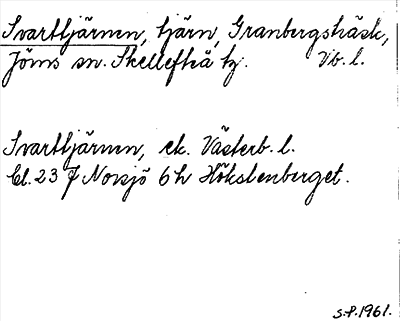 Svarttjärnen, tjärn, Granbergsträsk,
Jörns sn. Skellefteå tg. Vb. l.
Svarttjärnen, ek. Västerb. l.
Bl. 23 J Norsjö 6h Hökstenberget.
S.P. 1961.